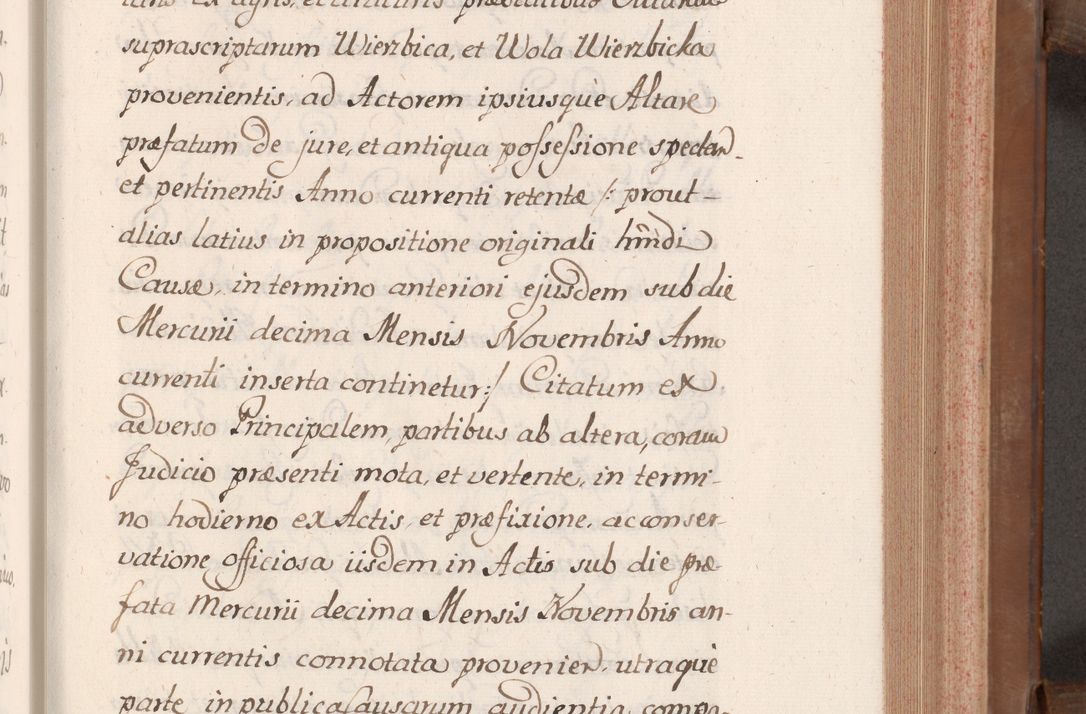 suprascriptarum Wierzbica, et Wola Wierzbicka
provenientis, ad Actorem ipsiusque Altare
præfatum de jure, et antiqua possessione spectan.
et pertinentis Anno currenti retentæ /: prout-
alias latius in propositione originali hmdi
Causæ, in termino anteriori ejusdem sub die
Mercurii decima Mensis Novembris Anno
currenti inserta continetur :/ Citatum ex
adverso Principalem, partibus ab altera, coram
Judicio præsenti mota, et vertente, in termi-
no hodierno ex Actis, et præfixione, ac conser-
vatione officiosa iisdem in Actis sub die præ
fata Mercurii decima Mensis Novembris an-
ni currentis connotata provenien. utraque
parte in publica Causarum audientia compa-